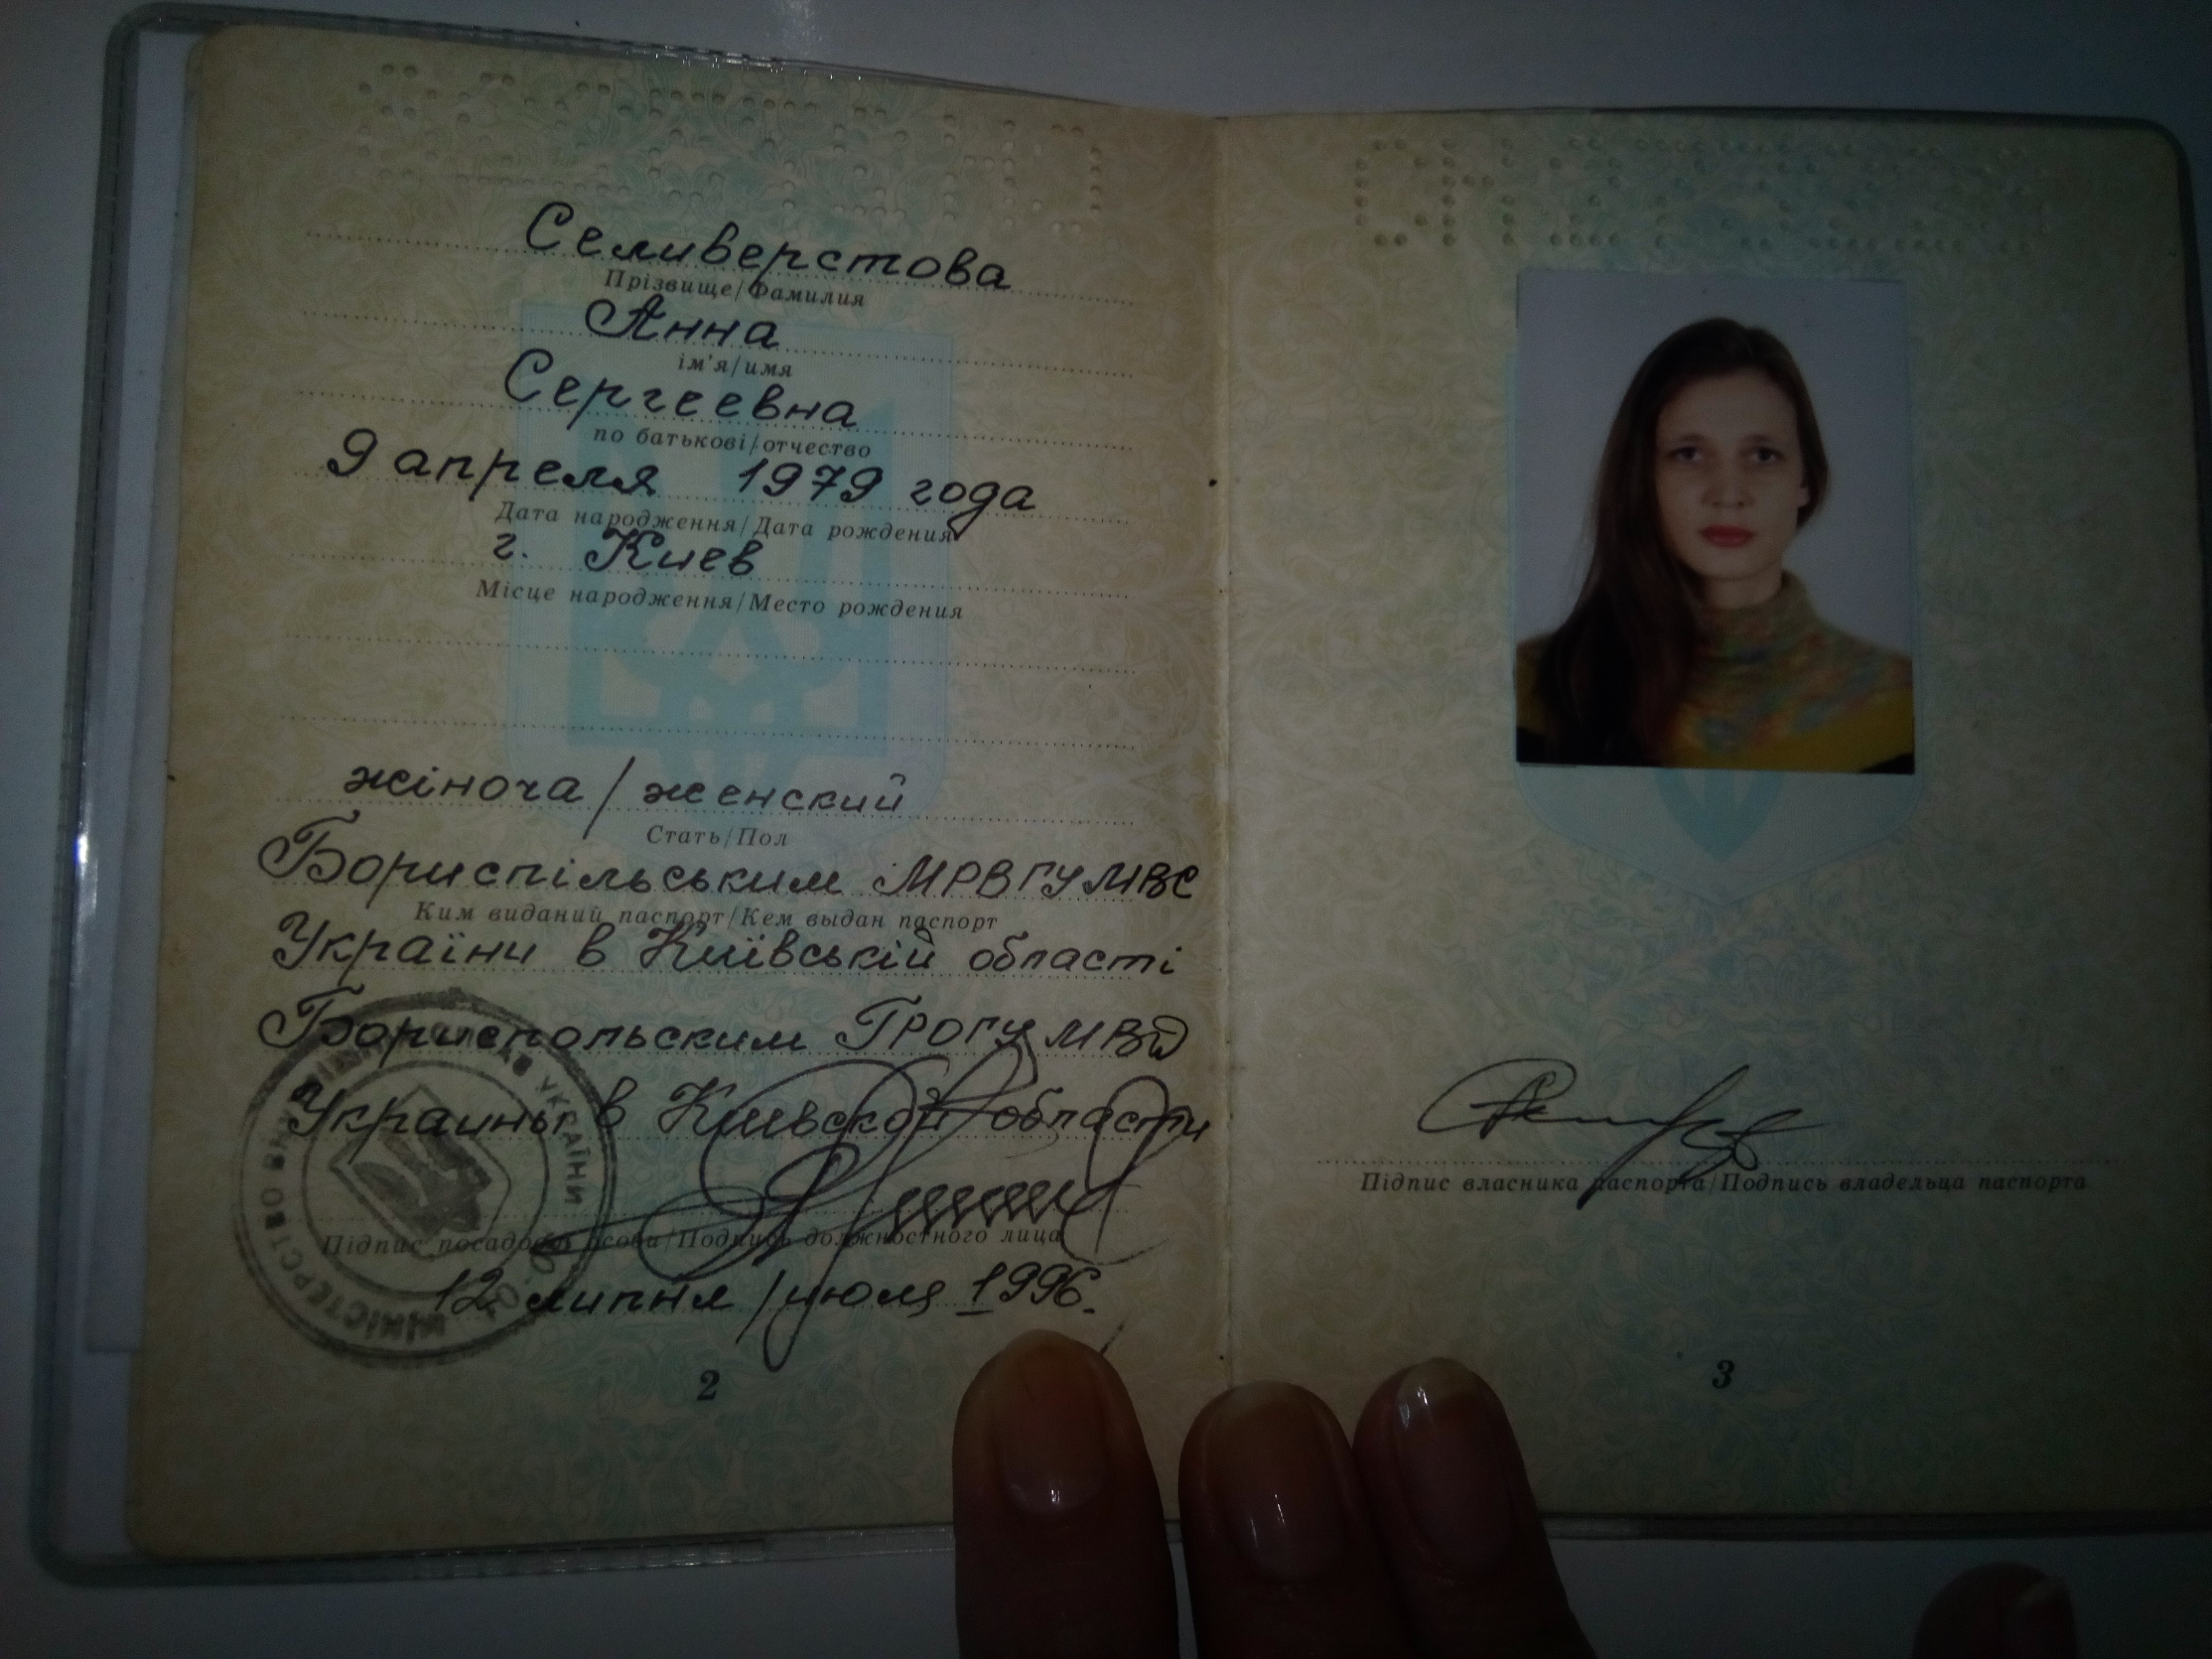 Селиверстова
Прізвище/Фамилия
Анна
ім'я/имя
Сергеевна
по батькові/отчество
9 апреля 1979 года
Дата народження/Дата рождения
г. Киев
Місце народження/Место рождения
жіноча/женский
Стать/Пол
Бориспільським МРВГУМВС
Ким виданий паспорт/Кем выдан паспорт
України в Київській області
Бориспольским ГРОГУМВД
Украины в Киевской области
Підпис посадової особи/Подпись должностного лица
12 липня/июля 1996.
2
МІНІСТЕРСТВО ВНУТРІШНІХ СПРАВ УКРАЇНИ
Підпис власника паспорта/Подпись владельца паспорта
3